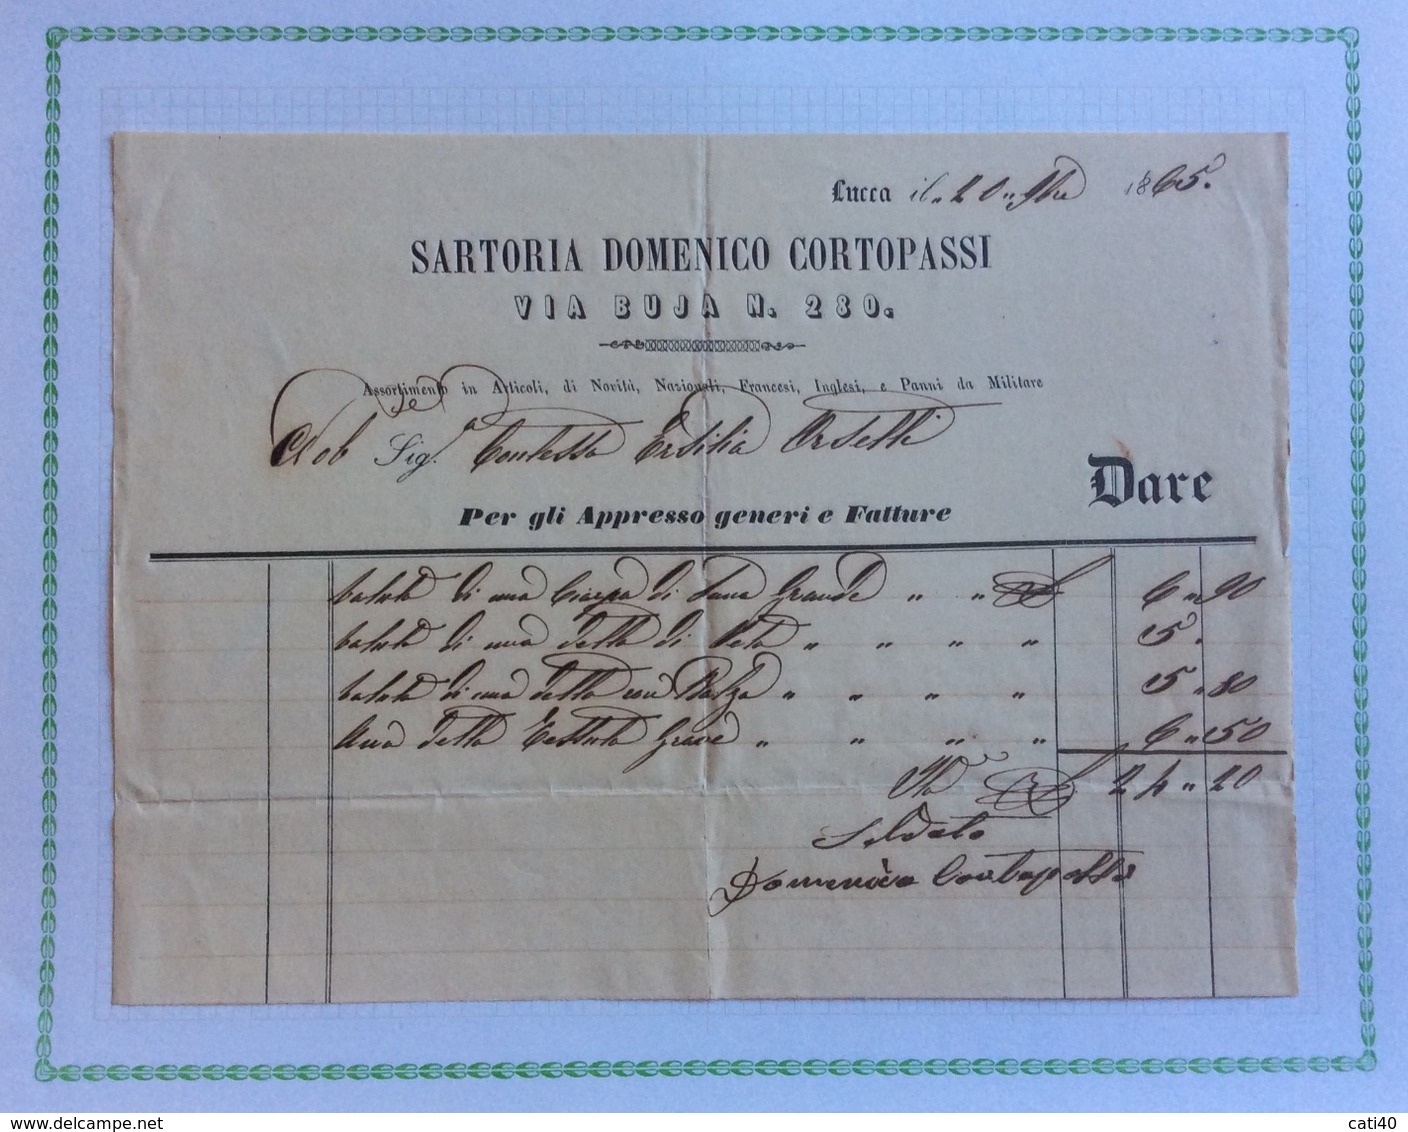 Lucca il 20 9bre 1865.
SARTORIA DOMENICO CORTOPASSI
VIA BUJA N. 280.
Assortimento in Articoli, di Novità, Nazionali, Francesi, Inglesi, e Panni da Militare
Nob Sig.a Contessa Ersilia Orsetti
Dare
Per gli Appresso generi e Fatture
di una Ciarpa di Lana Grande " " 6 " 90
di una detta di Seta " " " " 5 .
di una detta con Balza " " " " 5 " 80
Una detta Tessuta Greve " " " " 6 " 50
24 " 20
Saldato
Domenico Cortopassi
www.delcampe.net
cati40